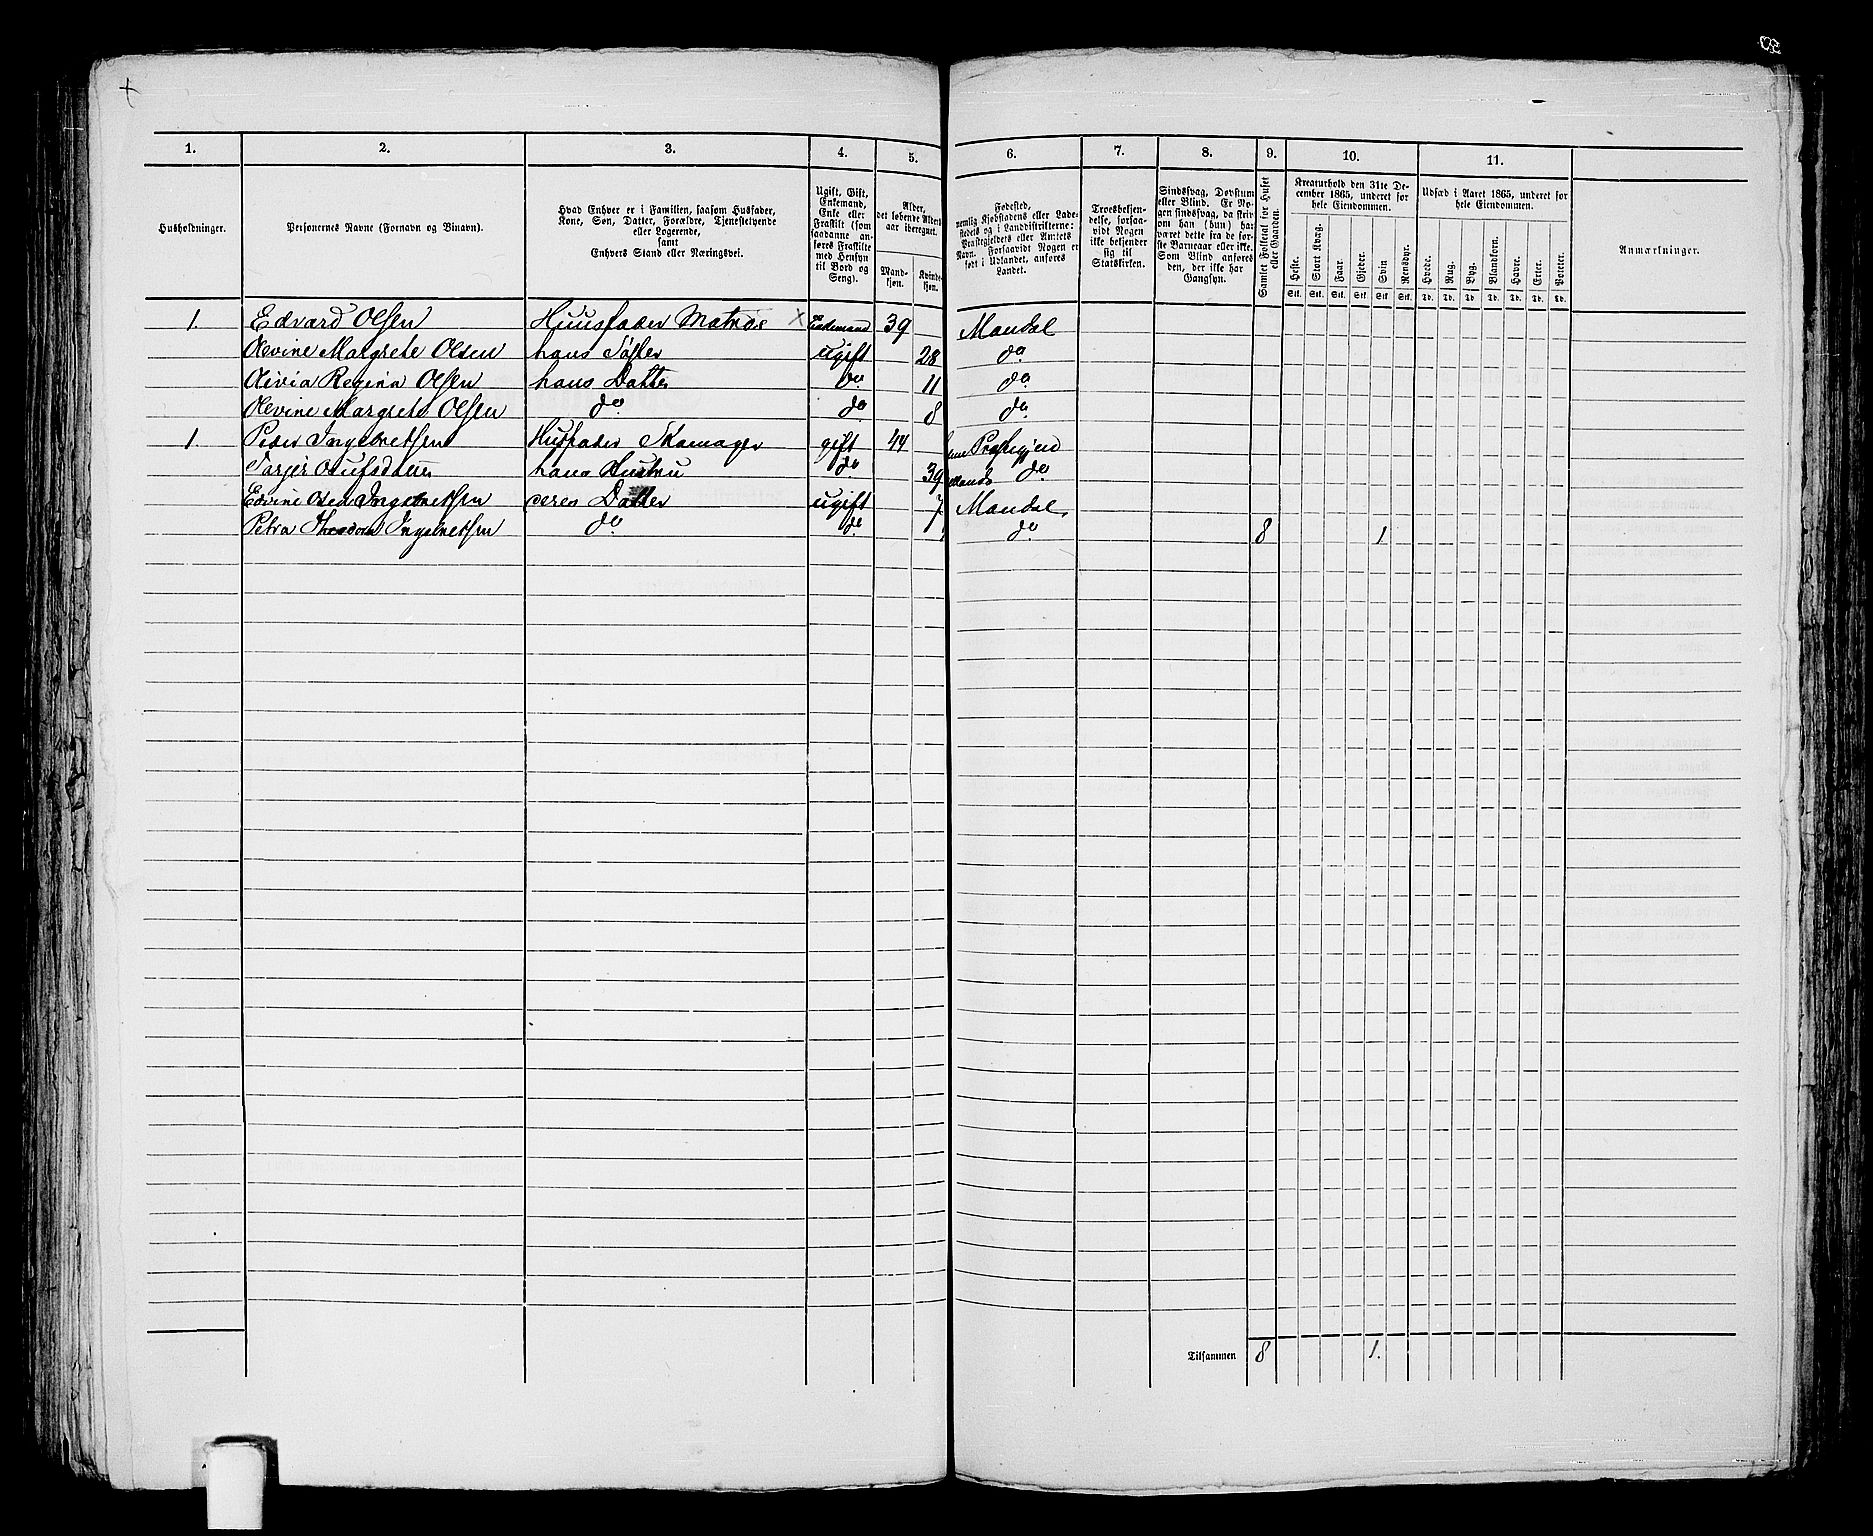 1. 2. 3. 4. 5. 6. 7. 8. 9. 10. 11.
Husholdninger.
Personernes Navne (Fornavn og Binavn).
Hvad Enhver er i Familien, saasom Husfader,
Kone, Søn, Datter, Forældre, Tjenestetyende
eller Logerende,
samt
Enhvers Stand eller Næringsvei.
Ugift, Gift,
Enkemand,
Enke eller
Fraskilt (som
saadanne an-
føres Fraskilte
med Hensyn
til Bord og
Seng).
Alder,
det løbende Alders-
aar iberegnet.
Mand-
kjøn.
Kvinde-
kjøn.
Fødested,
nemlig Kjøbstadens eller Lade-
stedets og i Landdistrikterne:
Præstegjeldets eller Amtets
Navn. Forsaavidt Nogen er
født i Udlandet, anføres
Landet.
Troesbekjen-
delse, forsaa-
vidt Nogen
ikke bekjender
sig til
Statskirken.
Sindssvag, Døvstum
eller Blind. Er No-
gen sindssvag, da skriv
om han (hun) har
været dette fra de før-
ste Barneaar eller ikke.
Som Blind anføres
den, der ikke har
Gangsyn.
Samlet Folketal for Huset
eller Gaarden.
Kreaturhold den 31te De-
cember 1865, underet for
hele Eiendommen.
Heste. Stort Kvæg. Faar. Gjeder. Svin Rensdyr.
Stk. Stk. Stk. Stk. Stk. Stk.
Udsæd i Aaret 1865, underet for
hele Eiendommen.
Hvede. Rug. Byg. Blandkorn. Havre. Erter. Poteter.
Td. Td. Td. Td. Td. Td. Td.
Anmærkninger.
1. Edvard Olsen Huusfader Matros × Enkemand 39 Mandal
Olevine Margrete Olsen hans Søster ugift 28 do
Regina Olsen hans Datter do 11 do
Olevine Margrete Olsen do do 8 do
1. Peder Ingebretsen Husfader Skomager gift 44 Præstegjeld
hans Hustru do 39 do
Edvine Ingebretsen deres Datter ugift 7 Mandal
Petra Theodora Ingebretsen do do do 8 1
Tilsammen 8 1.